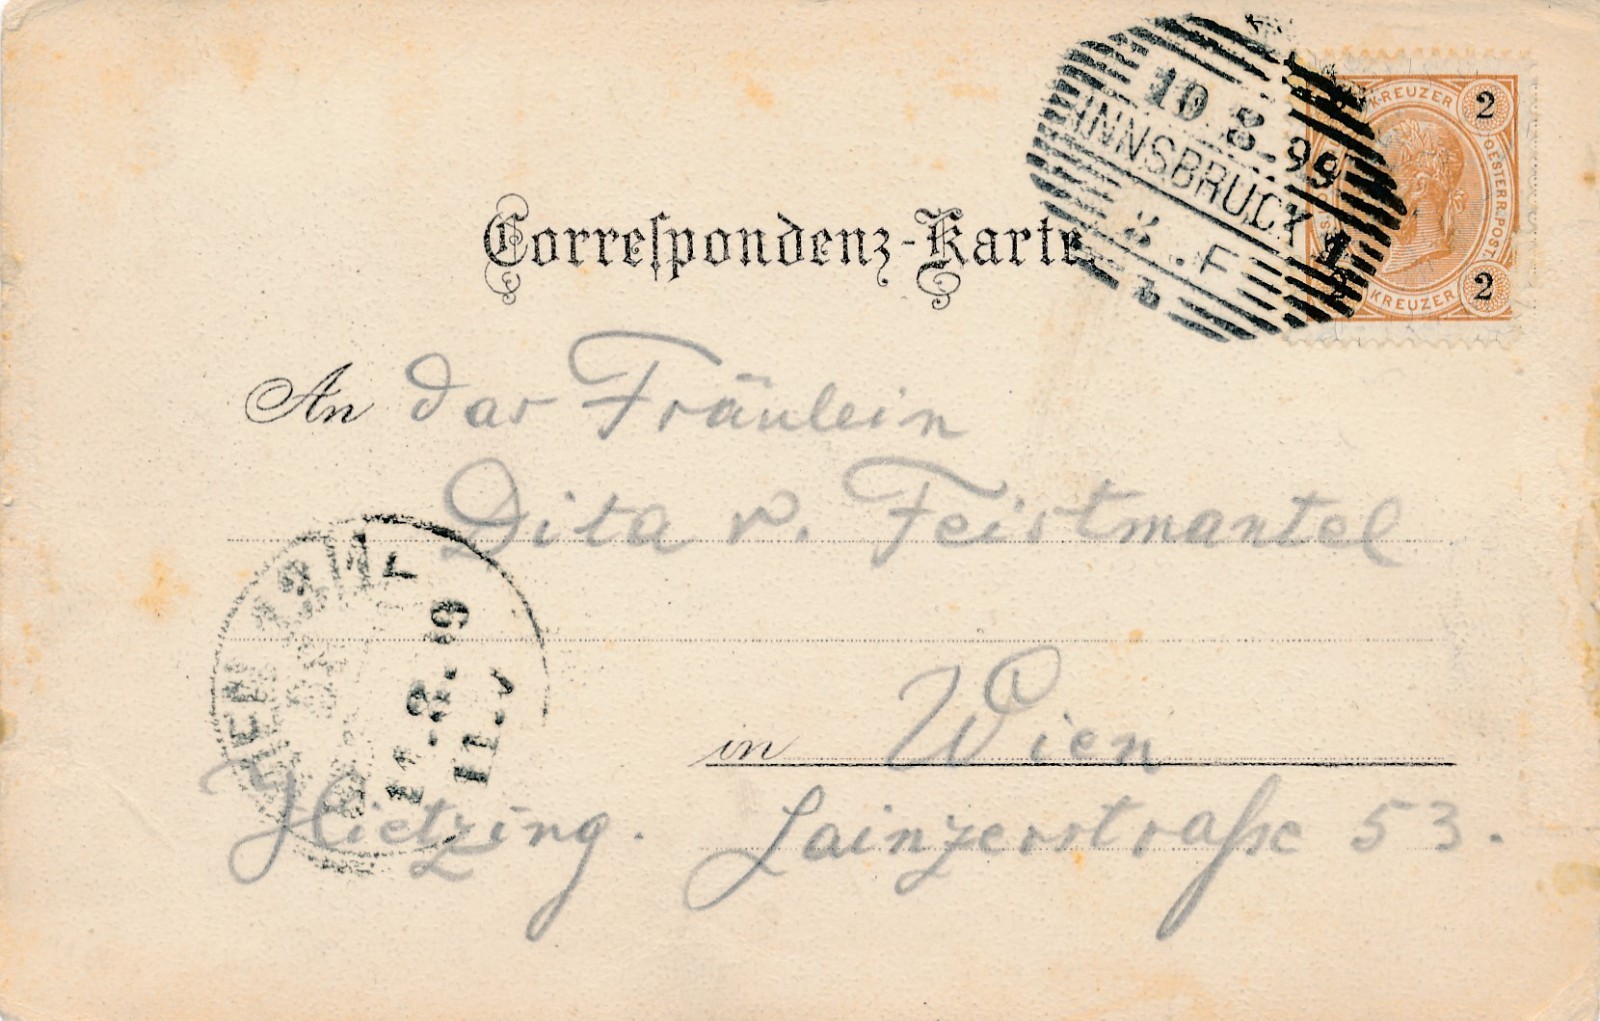 10.8.99
INNSBRUCK 1
2.F
KREUZER
2
OESTERR.POST
KREUZER
2
Correſpondenz-Karte.
An das Fräulein
Dita v. Feistmantel
in Wien
Hietzing. Lainzerstraſse 53.
11.8.99
11.V